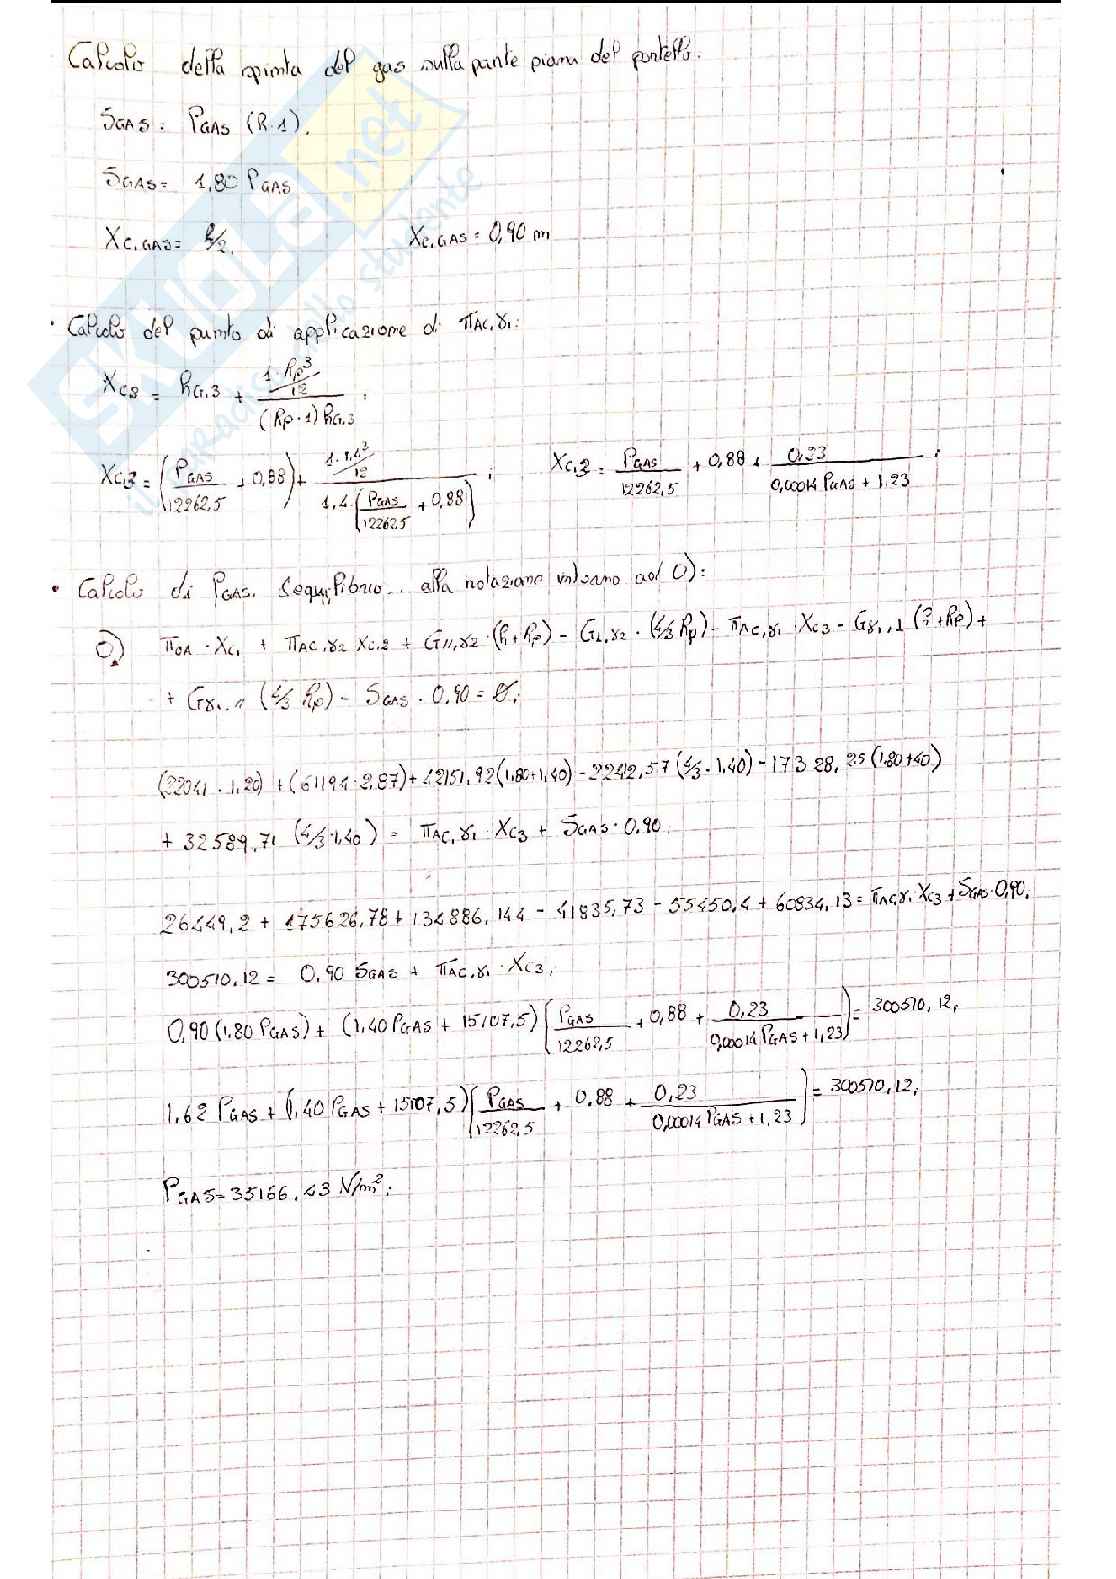 Calcolo della spinta del gas sulla parte piana del portello.
SGAS = PGAS (h·1).
SGAS = 1,80 PGAS
XC,GAS = h/2. XC,GAS = 0,90 m
• Calcolo del punto di applicazione di πAC,γ1:
XC3 = hG,3 + (1·hp³/12)/((hp·1) hG,3) ;
XC,3 = (PGAS/12262,5 + 0,88) + (1·1,4³/12)/(1,4·(PGAS/12262,5 + 0,88)) ; XC,3 = PGAS/12262,5 + 0,88 + 0,23/(0,00014 PGAS + 1,23) ;
• Calcolo di PGAS. (equilibrio alla rotazione intorno ad O):
O) πOA · XC1 + πAC,γ2 XC,2 + G11,γ2 · (h+hp) - G1,γ2 · (4/3 hp) - πAC,γ1 · XC3 - Gγ1,1 (h+hp) +
+ Gγ1,11 (4/3 hp) - SGAS · 0,90 = 0;
(22041 · 1,20) + (61194 · 2,87) + 42151,92 (1,80+1,40) - 2242,57 (4/3 · 1,40) - 17328,25 (1,80+1,40)
+ 32589,71 (4/3·1,40) = πAC,γ1 · XC3 + SGAS · 0,90
26449,2 + 175626,78 + 134886,144 - 41835,73 - 55450,4 + 60834,13 = πAC,γ1 · XC3 + SGAS · 0,90.
300510,12 = 0,90 SGAS + πAC,γ1 · XC3,
0,90 (1,80 PGAS) + (1,40 PGAS + 15107,5) (PGAS/12262,5 + 0,88 + 0,23/(0,00014 PGAS + 1,23)) = 300510,12,
1,62 PGAS + (1,40 PGAS + 15107,5) (PGAS/12262,5 + 0,88 + 0,23/(0,00014 PGAS + 1,23)) = 300510,12,
PGAS = 35166,43 N/m²;